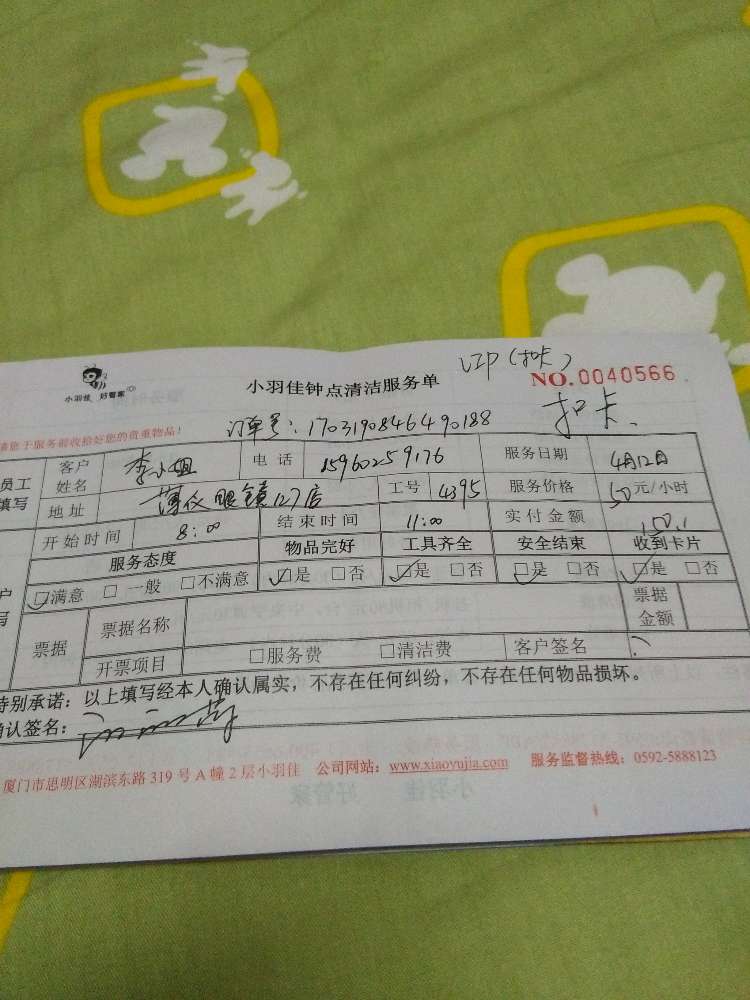 VIP (扣卡)
小羽佳 好管家
小羽佳钟点清洁服务单
NO.0040566
扣卡.
请您于服务前收拾好您的贵重物品!
订单号: 170319084649 0188
员工填写 客户姓名 李小姐 电话 15960259176 服务日期 4月12日
地址 薄仪眼镜127店 工号 4395 服务价格 50元/小时
开始时间 8:00 结束时间 11:00 实付金额 150.
服务态度 物品完好 工具齐全 安全结束 收到卡片
☑满意 □一般 □不满意 ☑是 □否 ☑是 □否 ☑是 □否 ☑是 □否
票据 票据名称 票据金额
开票项目 □服务费 □清洁费 客户签名
特别承诺:以上填写经本人确认属实,不存在任何纠纷,不存在任何物品损坏。
确认签名:
厦门市思明区湖滨东路319号A幢2层小羽佳 公司网站:www.xiaoyujia.com 服务监督热线:0592-5888123